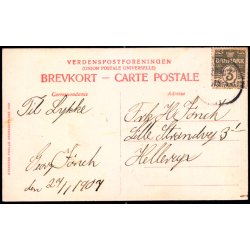 VERDENSPOSTFORENINGEN
(UNION POSTALE UNIVERSELLE)
BREVKORT – CARTE POSTALE
Korrespondance
Adresse
Til Lykke
Georg Fönch
den 27/1 1907
Frk. H. Fönch
Lille Strandvej 3
Hellerup
DANMARK
3